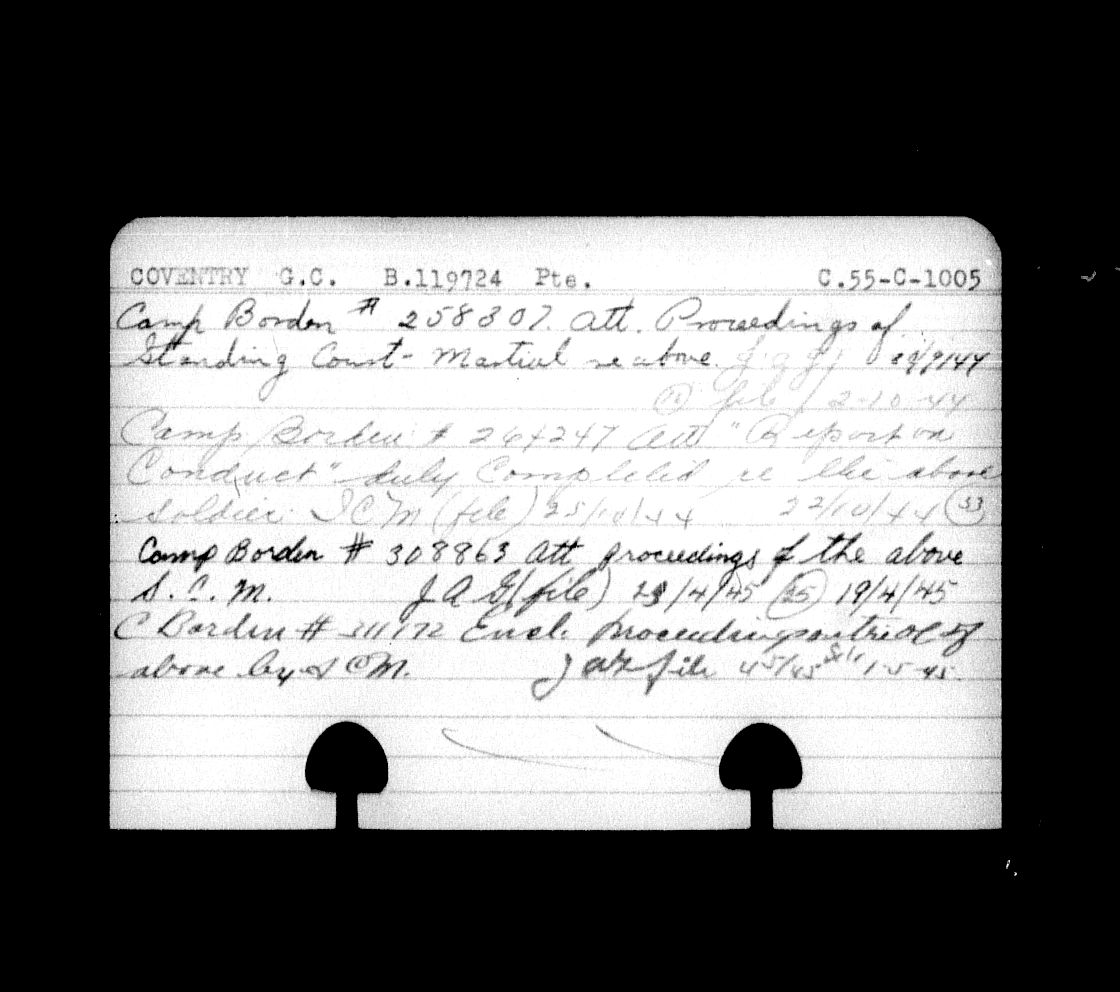 COVENTRY G.C. B.119724 Pte. C.55-C-1005
Camp Borden # 258307. Att. Proceedings of
Standing Court-Martial re above. J.A.G. /9/44
file 2-10-44
Camp Borden # 264247 Att "Report on
Conduct" duly Completed re the above
soldier. (file) 25/10/44 22/10/44 (33)
Camp Borden # 308863 Att proceedings of the above
S.C.M. J A G (file) 23/4/45 (25) 19/4/45
C Borden # 311172 Encl. proceedings on trial of
above by S C M. J A G file 4/5/45 1-5-45.